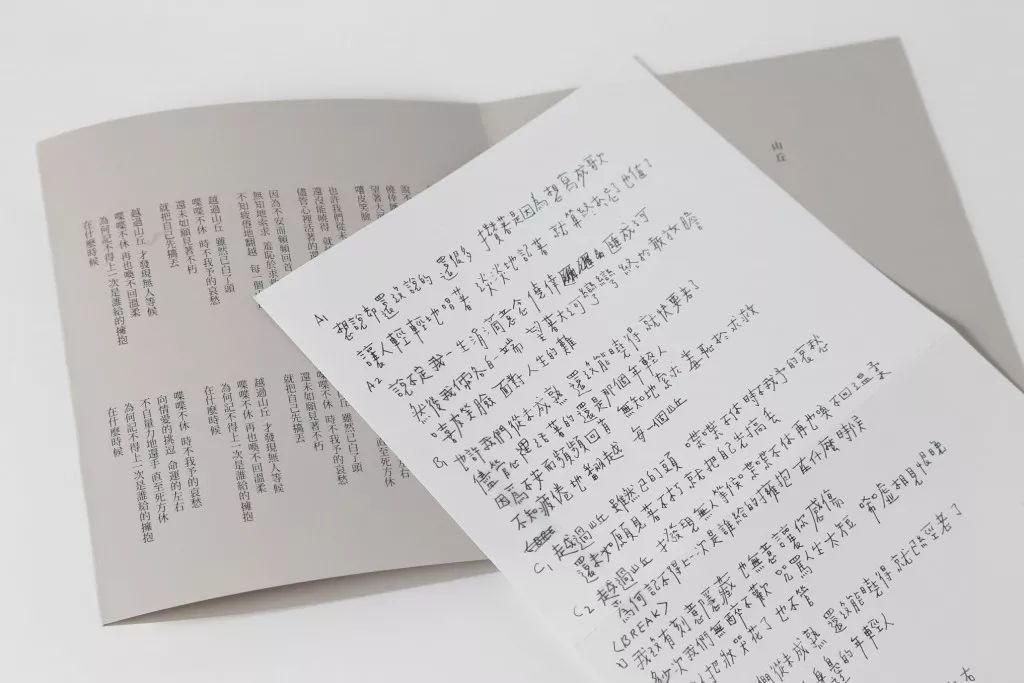 山丘
說不
僥倖
望著大
嘻皮笑臉
也許我們從未
還沒能曉得 就
儘管心裡活著的
因為不安而頻頻回首
無知地索求 羞恥於求
不知疲倦地翻越 每一個
越過山丘 雖然已白了頭
喋喋不休 時不我予的哀愁
還未如願見著不朽
就把自己先搞丟
越過山丘 才發現無人等候
喋喋不休 再也喚不回溫柔
為何記不得上一次是誰給的擁抱
在什麼時候
左右
至死方休
雖然已白了頭
時不我予的哀愁
還未如願見著不朽
就把自己先搞丟
越過山丘 才發現無人等候
喋喋不休 再也喚不回溫柔
為何記不得上一次是誰給的擁抱
在什麼時候
喋喋不休 時不我予的哀愁
向情愛的挑逗 命運的左右
不自量力地還手 直至死方休
為何記不得上一次是誰給的擁抱
在什麼時候
A1 想說卻還沒說的 還很多 攢著是因為想寫成歌
讓人輕輕地唱著 淡淡地記著 就算終於忘了也值了
A2 說不定我一生涓滴意念 僥倖匯成河
然後我倆各自一端 望著大河彎彎 終於敢放膽
嘻皮笑臉 面對 人生的難
B1 也許我們從未成熟 還沒能曉得 就快要老了
儘管心裡活著的還是那個年輕人
因為不安而頻頻回首 無知地索求 羞恥於求救
不知疲倦地翻越 每一個山丘
C1 越過山丘 雖然已白了頭 喋喋不休 時不我予的哀愁
還未如願見著不朽 就把自己先搞丟
C2 越過山丘 才發現無人等候 喋喋不休 再也喚不回溫柔
為何記不得上一次是誰給的擁抱 在什麼時候
(BREAK)
我沒有刻意隱藏 也無意讓你感傷
多少次我們無醉不歡 咒罵人生太短 唏噓相見恨晚
人把妝哭花了 也不管
們從未成熟 還沒能曉得 就已經老了
的年輕人